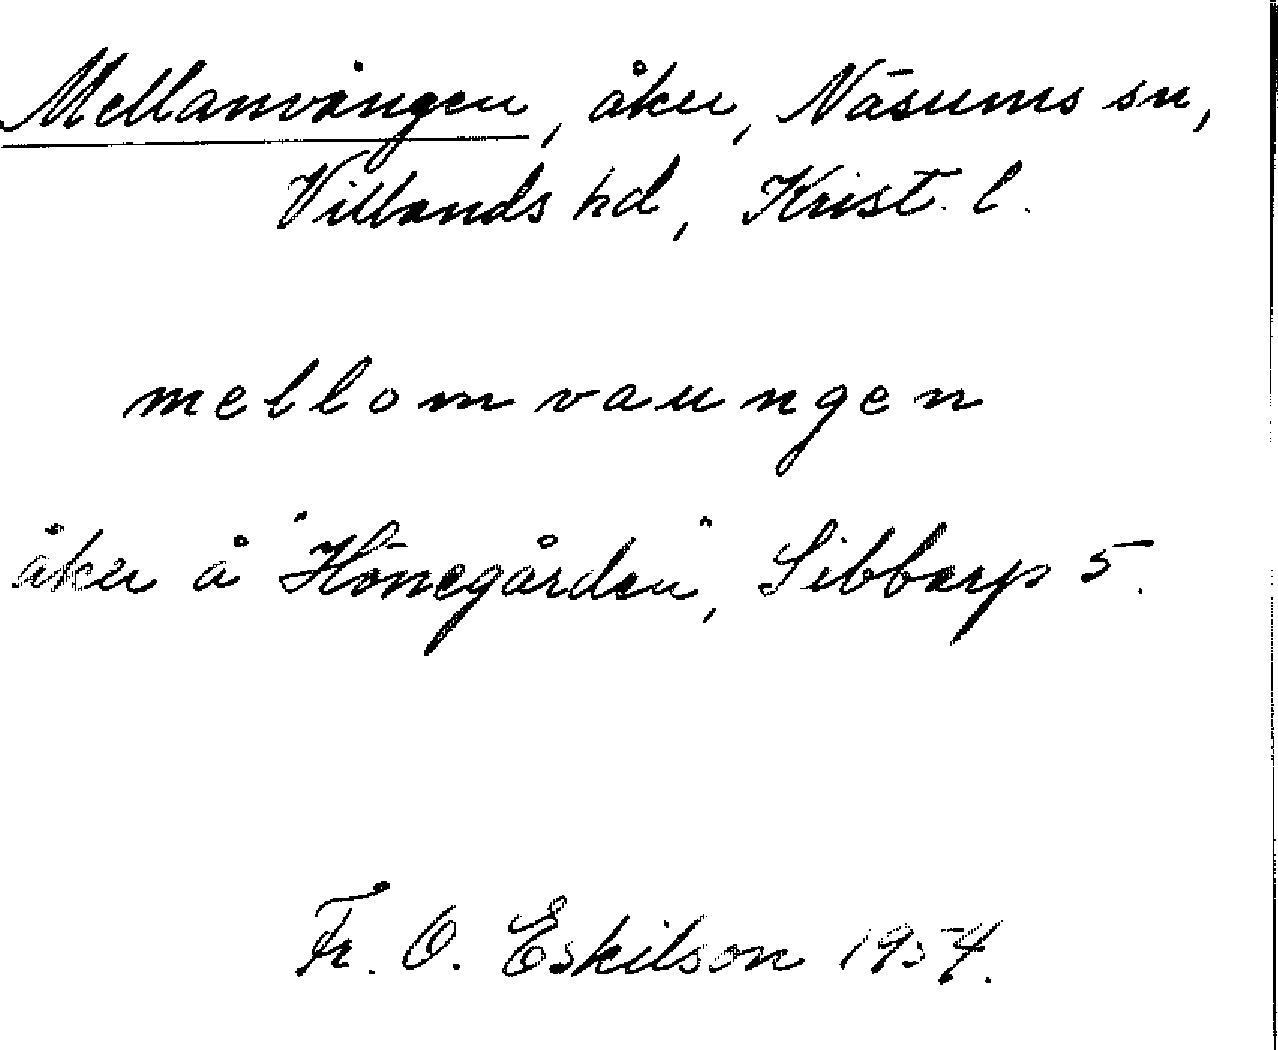 Mellanvången, åker, Näsums sn,
Villands hd, Krist. l.
mellomvaungen
åker å "Hönegården", Sibbarp 5.
Fr. O. Eskilson 1954.